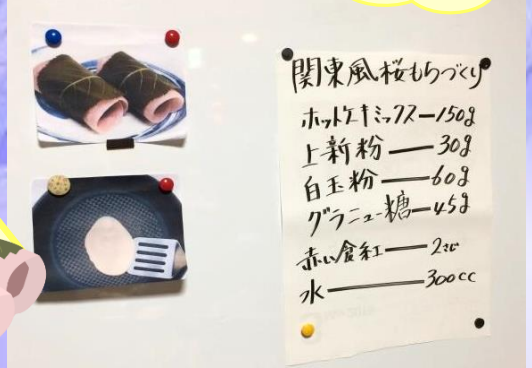 関東風桜もちづくり
ホットケーキミックス―150g
上新粉―30g
白玉粉―60g
グラニュー糖―45g
赤い食紅―2さじ
水―300cc